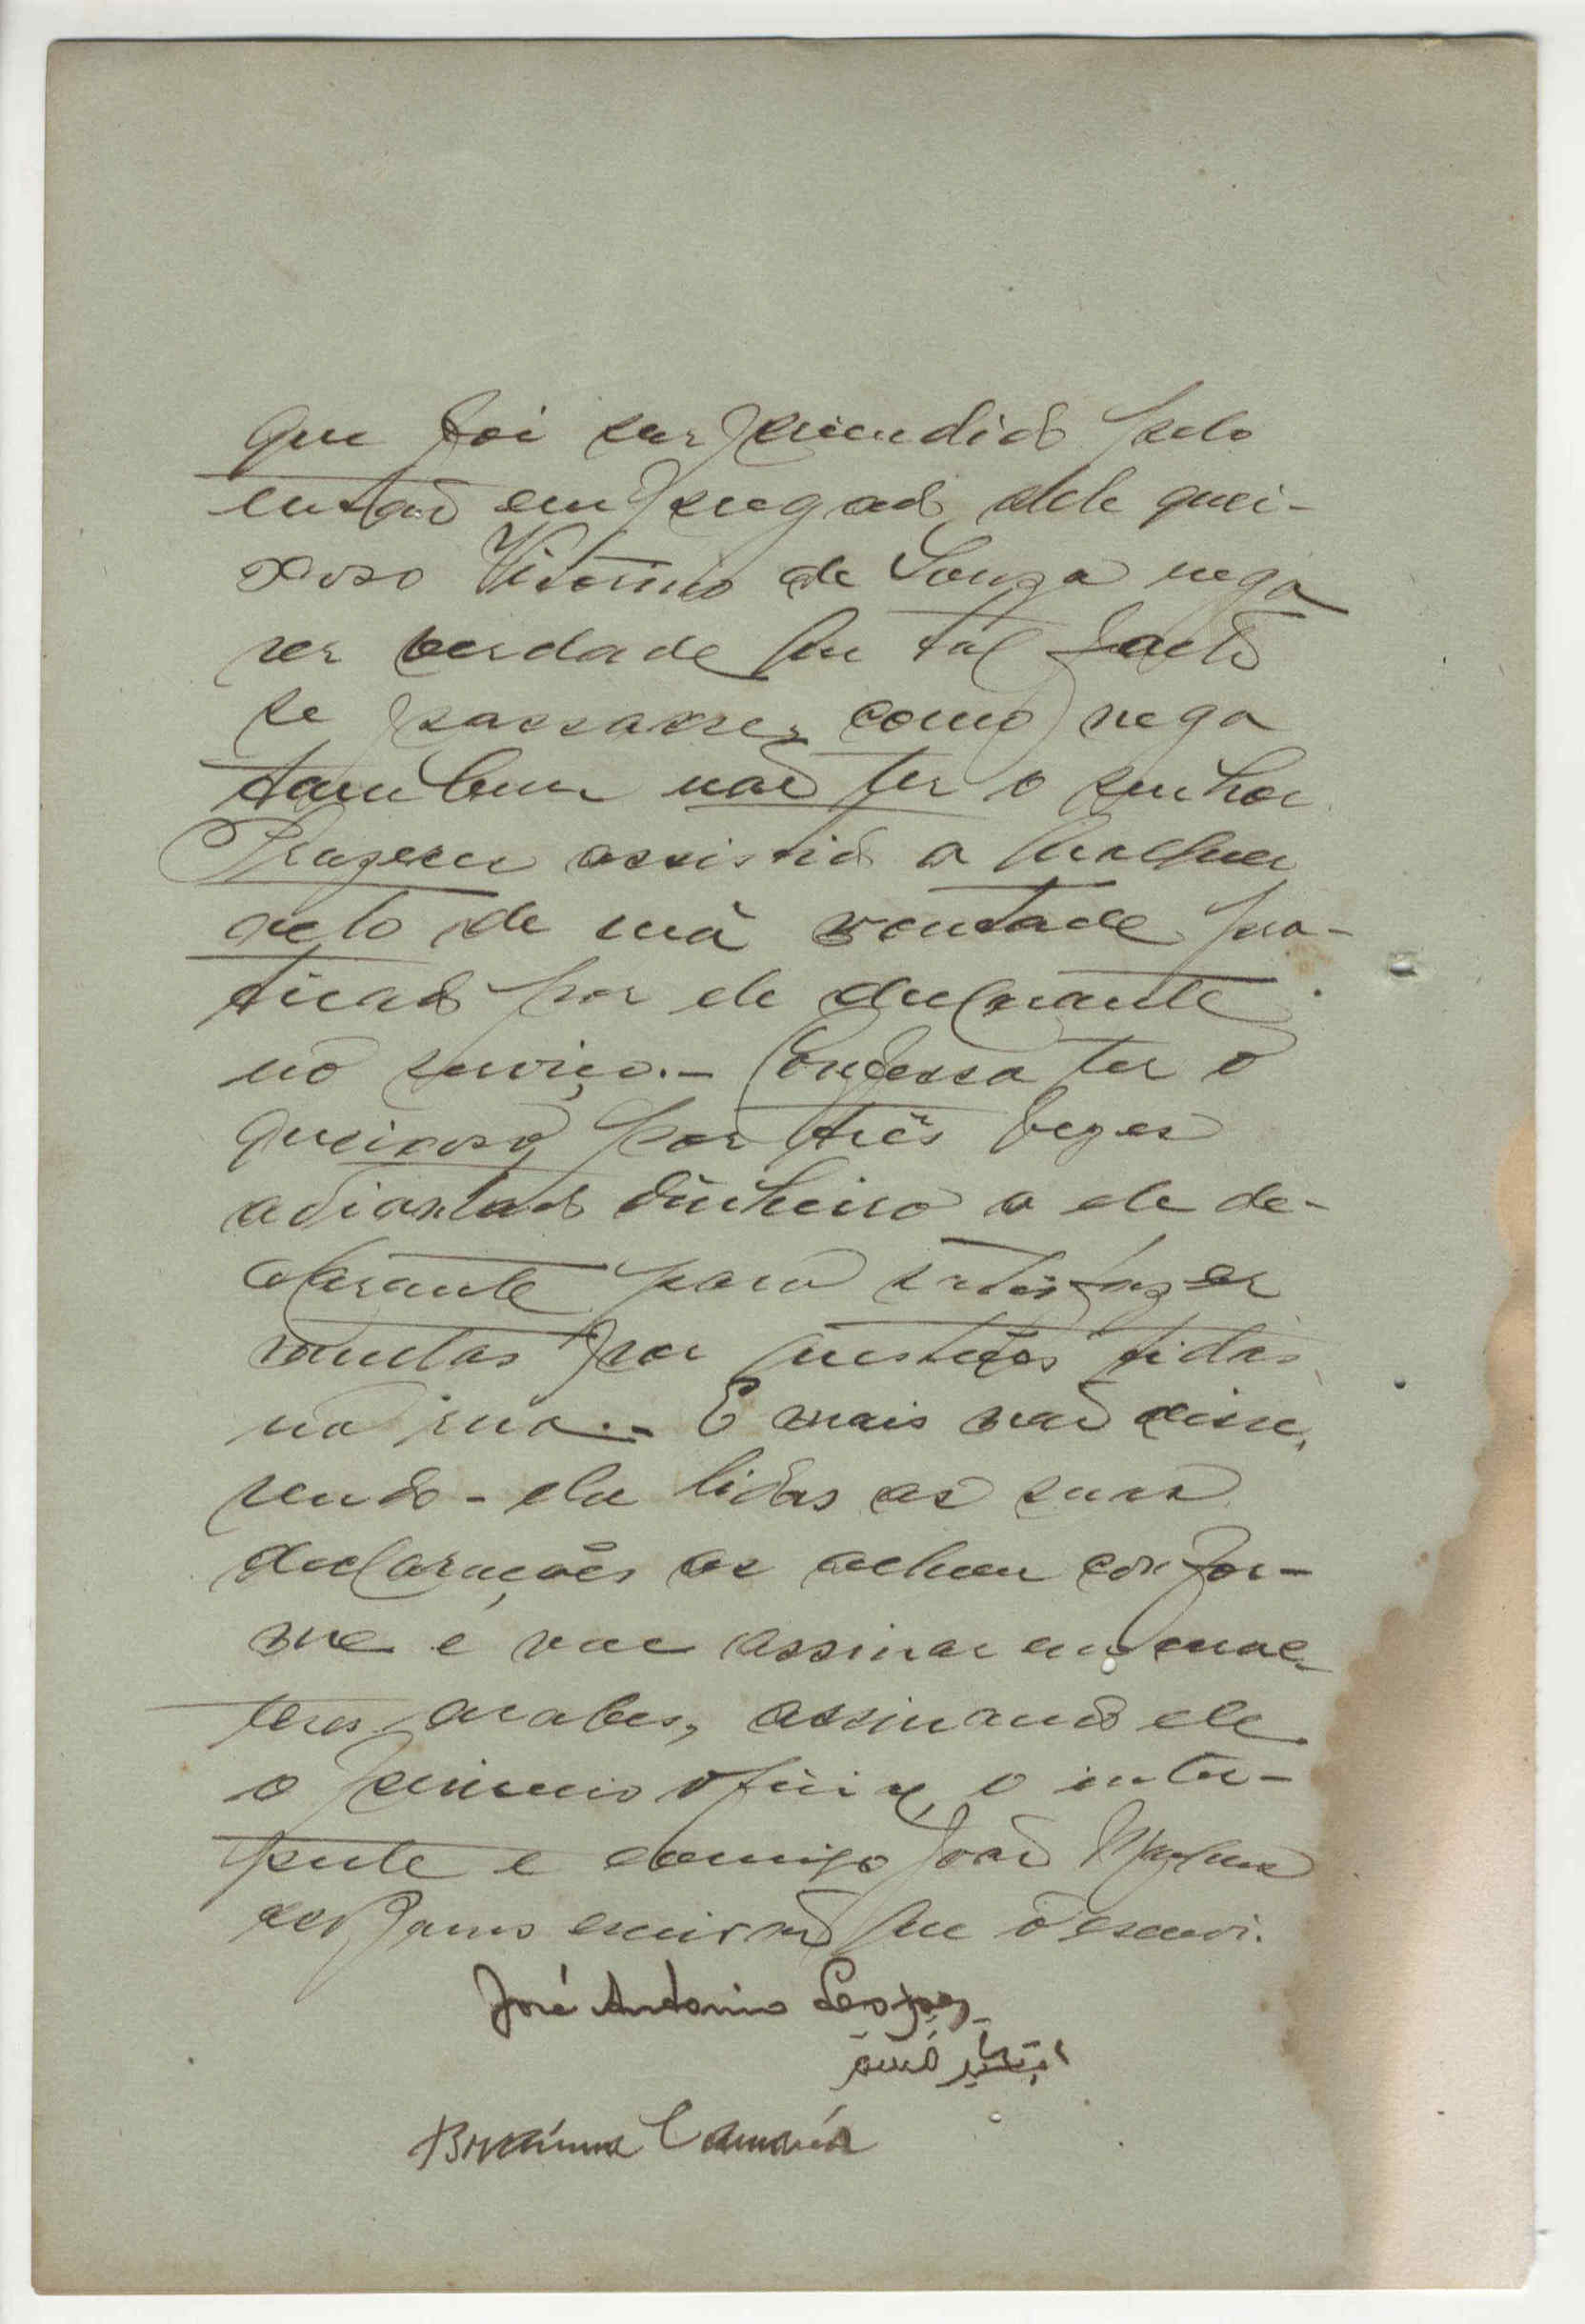 que foi surpreendido pelo
então empregado dele quei-
xoso Vitorino de Souza nega
ser verdade que tal facto
se passasse, como nega
tambem não ter o senhor
Prazeres assistido a qualquer
acto de má vontade pra-
ticado por ele declarante
no serviço. - Confessa ter o
queixoso por três vezes
adiantado dinheiro a ele de-
clarante para satisfazer
multas por questões tidas
na rua. - E mais não disse,
sendo-lhe lidas as suas
declarações as achou confor-
me e vae assinar em carac-
teres arabes, assinando ele
o primeiro oficial, o inter-
prete e comigo João
escrivão que o escrevi.
José Antonio Lopes